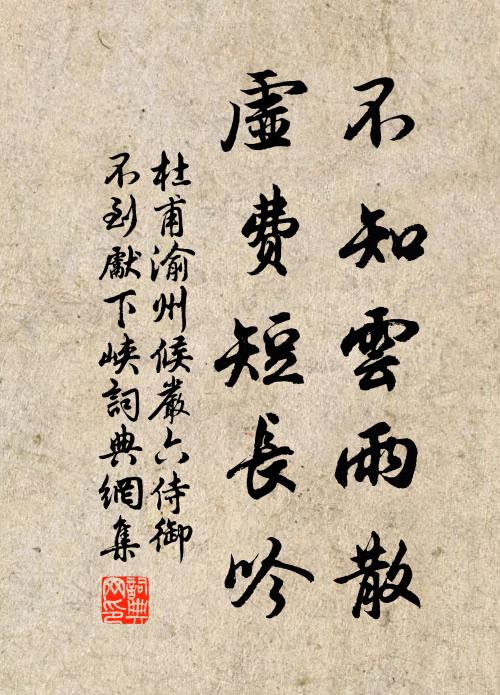 不知雲雨散
虛費短長吟
杜甫渝州候嚴六侍御
不到獻下峽詞典網集
詞典
网印